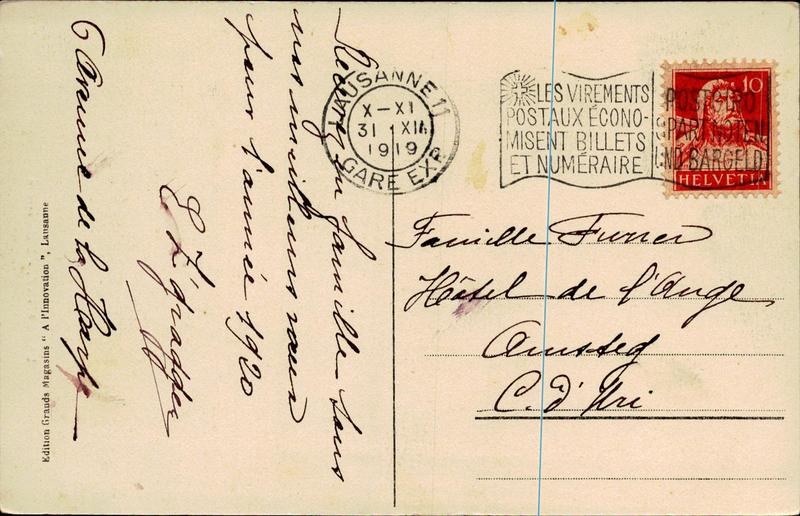 Recevez en famille tous
nos meilleurs vœux
pour l'année 1920
6 Avenue de la Harpe
Edition Grands Magasins " A l'Innovation ", Lausanne
LAUSANNE 11
X-XI
31 XII
1919
GARE EXP.
LES VIREMENTS
POSTAUX ÉCONO-
MISENT BILLETS
ET NUMÉRAIRE
POSTGIRO
SPART NOTEN
UND BARGELD
10
HELVETIA
Famille Furrer
Hôtel de l'Ange
Amsteg
C. d'Uri